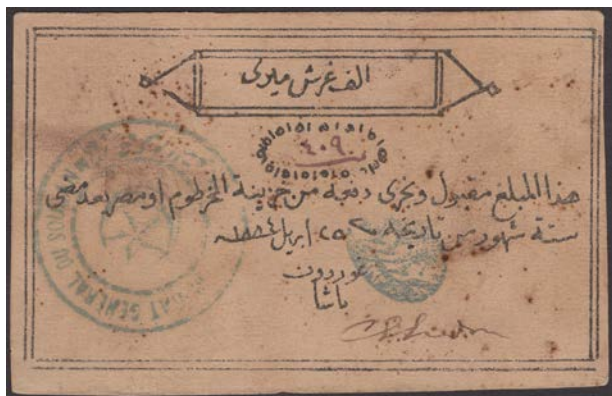 الف غرش ميرى
٤٠٩
هذا المبلغ مقبول وتجرى دفعه من خزينة الخرطوم او مصر بعد مضى
ستة شهور من تاريخه ٢٥ ابريل ١٨٨٤
غوردون
باشا
GENERAL DU